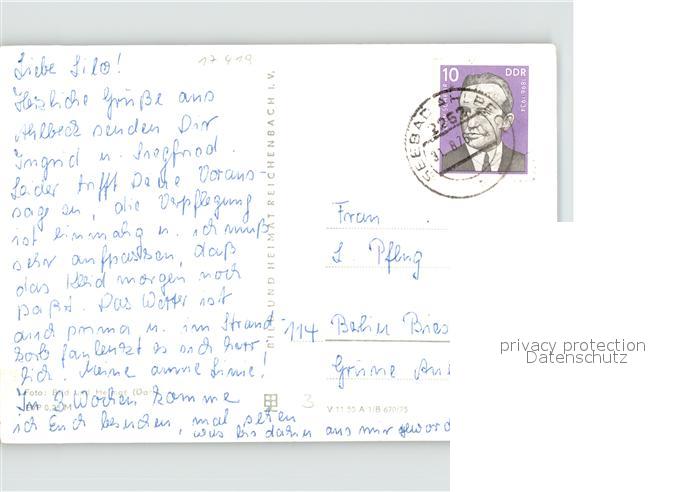 17 419
Liebe Lilo!
Herzliche Grüße aus
Ahlbeck senden Dir
Ingrid u. Siegfried.
Leider trifft Deine Voraus-
sage zu, die Verpflegung
ist einmalig u. ich muß
sehr aufpassen, daß
das Kleid morgen noch
paßt. Das Wetter ist
auch prima u. im Strand-
korb faulenzt es sich herr-
lich. Meine arme Linie!
In 3 Wochen komme
ich Euch besuchen, mal sehen
was bis dahin aus mir geword
Foto: Bild und Heimat
EVP 0,20 M
BILD UND HEIMAT REICHENBACH I. V.
3
V 11 50 A 1/B 670/75
10
DDR
SEEBAD AHLBECK
2252
Frau
L. Pflug
114 Berlin Bies
Grüne Au
privacy protection
Datenschutz